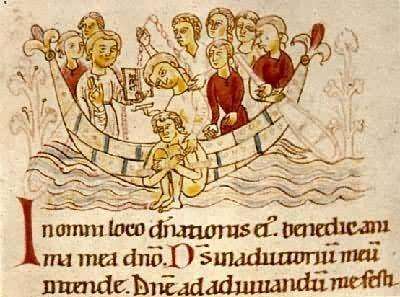 In omni loco dñationis ei᷒. benedic ani
ma mea dño. D̅s in adiutoriũ meũ
intende. Dñe ad adiuuandũ me festi